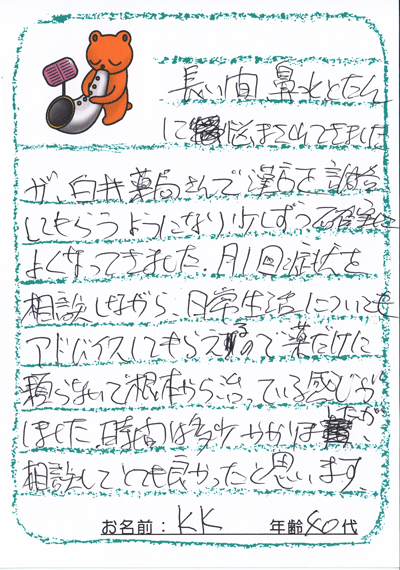 長い間鼻水とたん
に悩まされてきました
が、白井薬局さんで漢方を調合
してもらうようになり少しずつ確実に
よくなってきました。月1回症状を
相談しながら、日常生活についても
アドバイスしてもらえるので薬だけに
頼らないで根本から治っている感じが
しました。時間は多少かかりましたが、
相談してとても良かったと思います。
お名前：KK 年齢40代